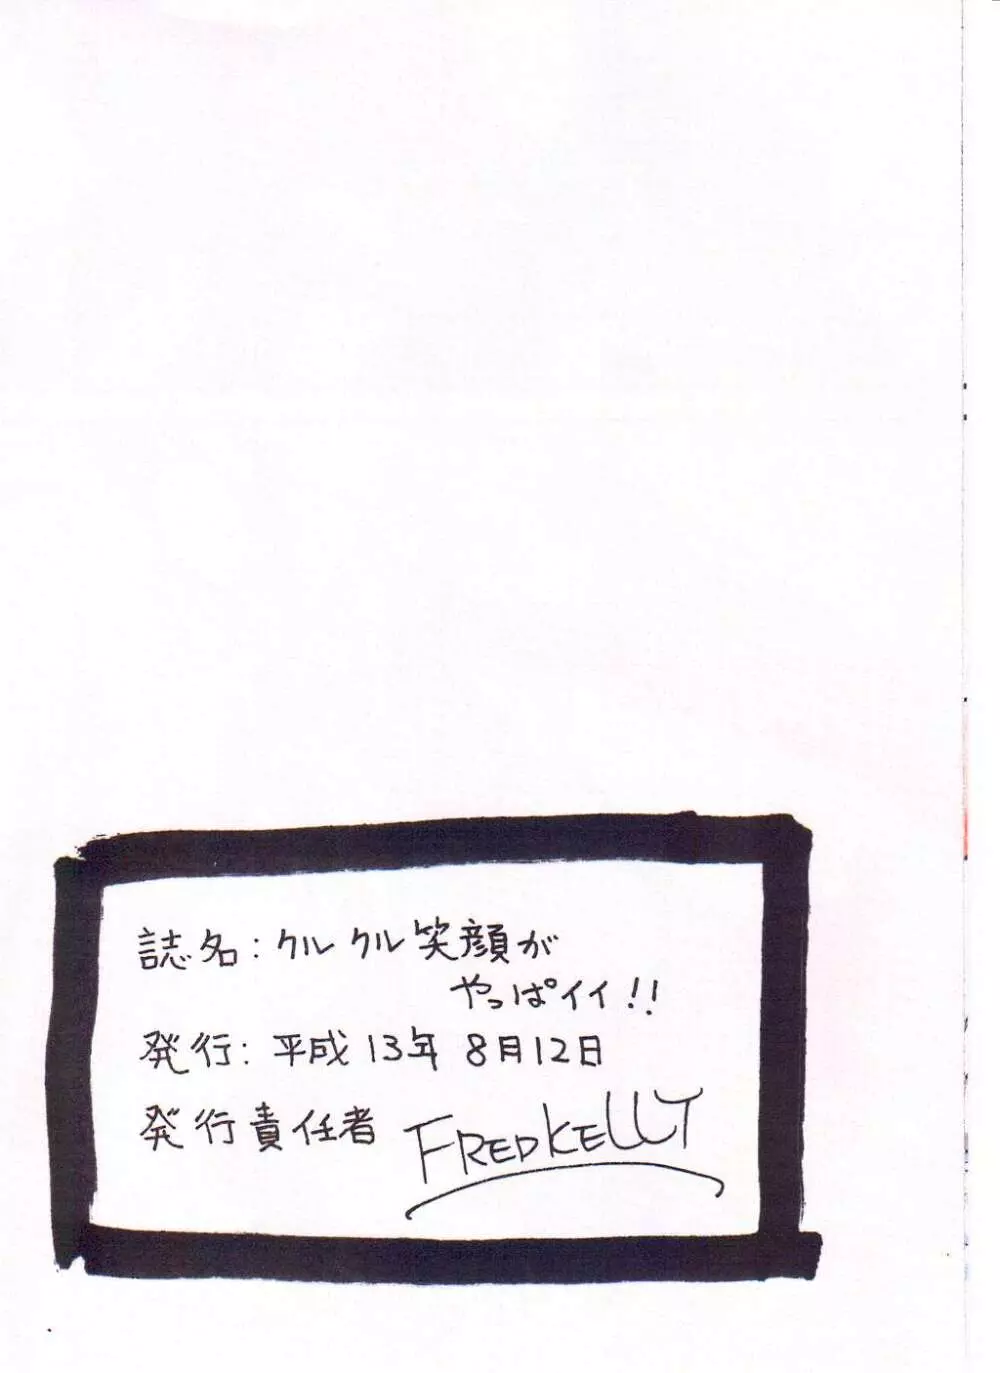 誌名：クルクル笑顔が
やっぱイイ!!
発行：平成13年 8月12日
発行責任者 FRED KELLY